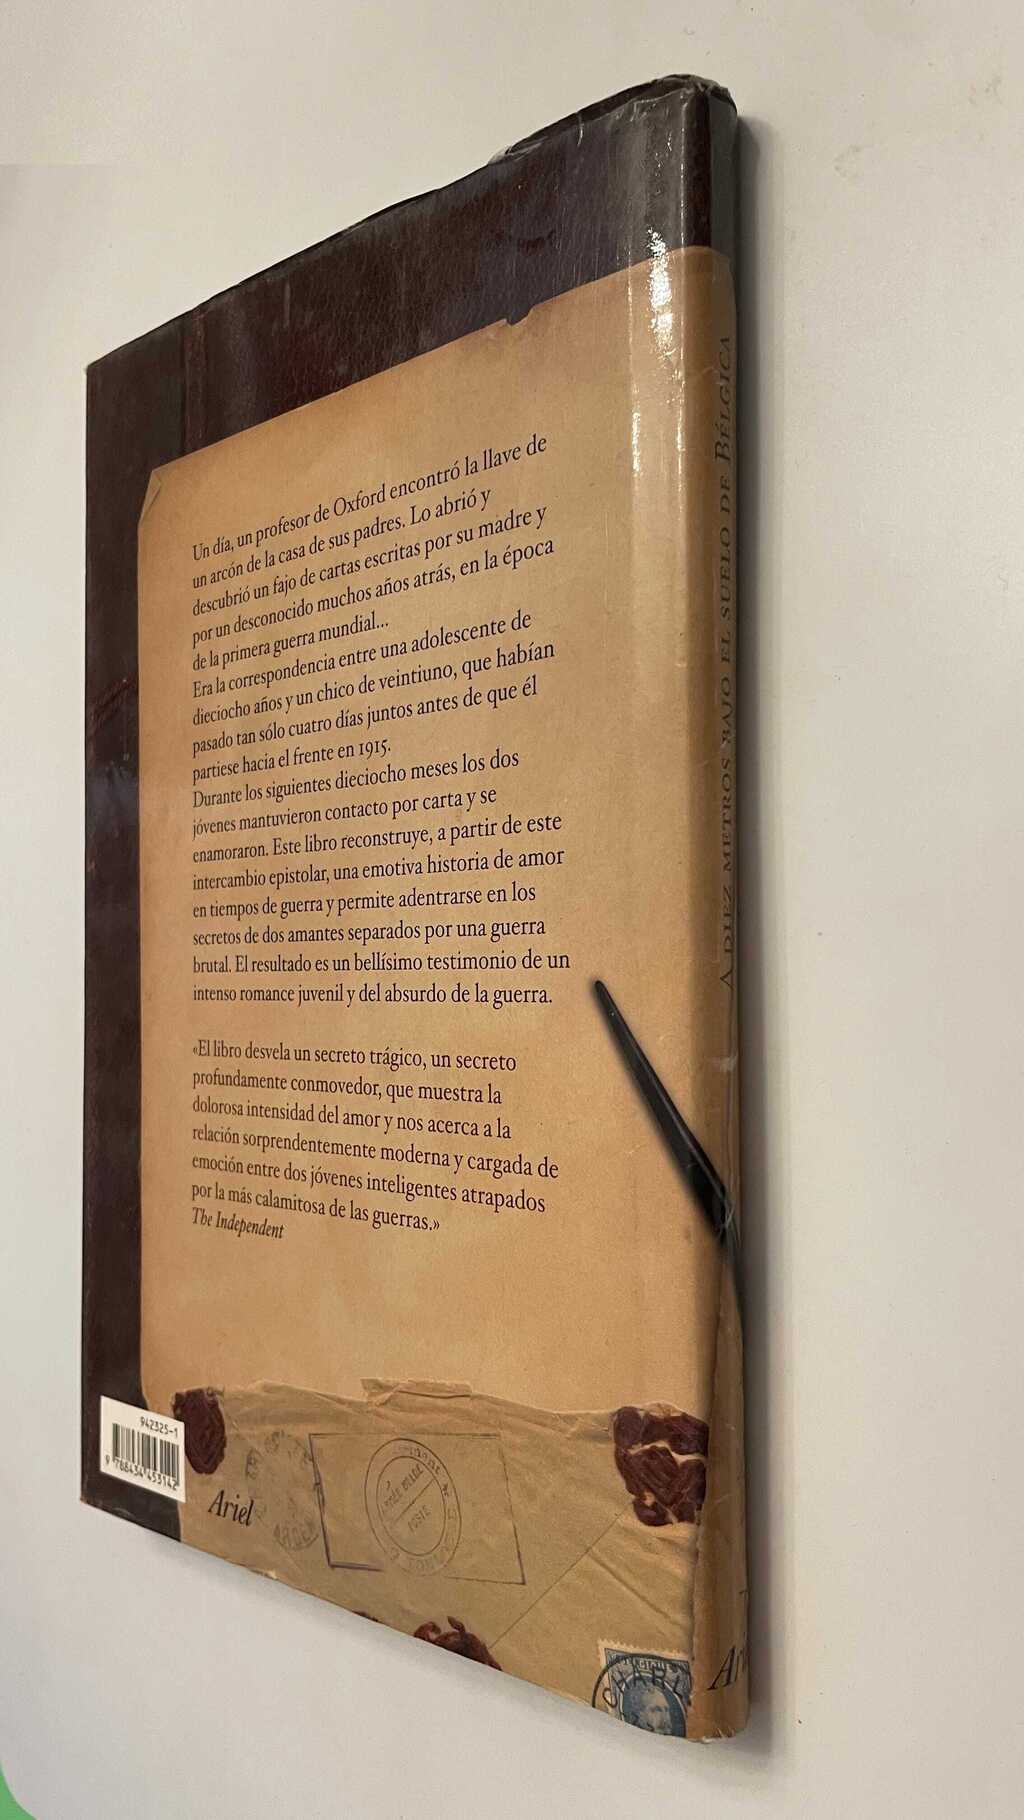 Un día, un profesor de Oxford encontró la llave de
un arcón de la casa de sus padres. Lo abrió y
descubrió un fajo de cartas escritas por su madre y
por un desconocido muchos años atrás, en la época
de la primera guerra mundial...
Era la correspondencia entre una adolescente de
dieciocho años y un chico de veintiuno, que habían
pasado tan sólo cuatro días juntos antes de que él
partiese hacia el frente en 1915.
Durante los siguientes dieciocho meses los dos
jóvenes mantuvieron contacto por carta y se
enamoraron. Este libro reconstruye, a partir de este
intercambio epistolar, una emotiva historia de amor
en tiempos de guerra y permite adentrarse en los
secretos de dos amantes separados por una guerra
brutal. El resultado es un bellísimo testimonio de un
intenso romance juvenil y del absurdo de la guerra.
«El libro desvela un secreto trágico, un secreto
profundamente conmovedor, que muestra la
dolorosa intensidad del amor y nos acerca a la
relación sorprendentemente moderna y cargada de
emoción entre dos jóvenes inteligentes atrapados
por la más calamitosa de las guerras.»
The Independent
942325-1
9 788434 453142
Ariel
A DIEZ METROS BAJO EL SUELO DE BÉLGICA